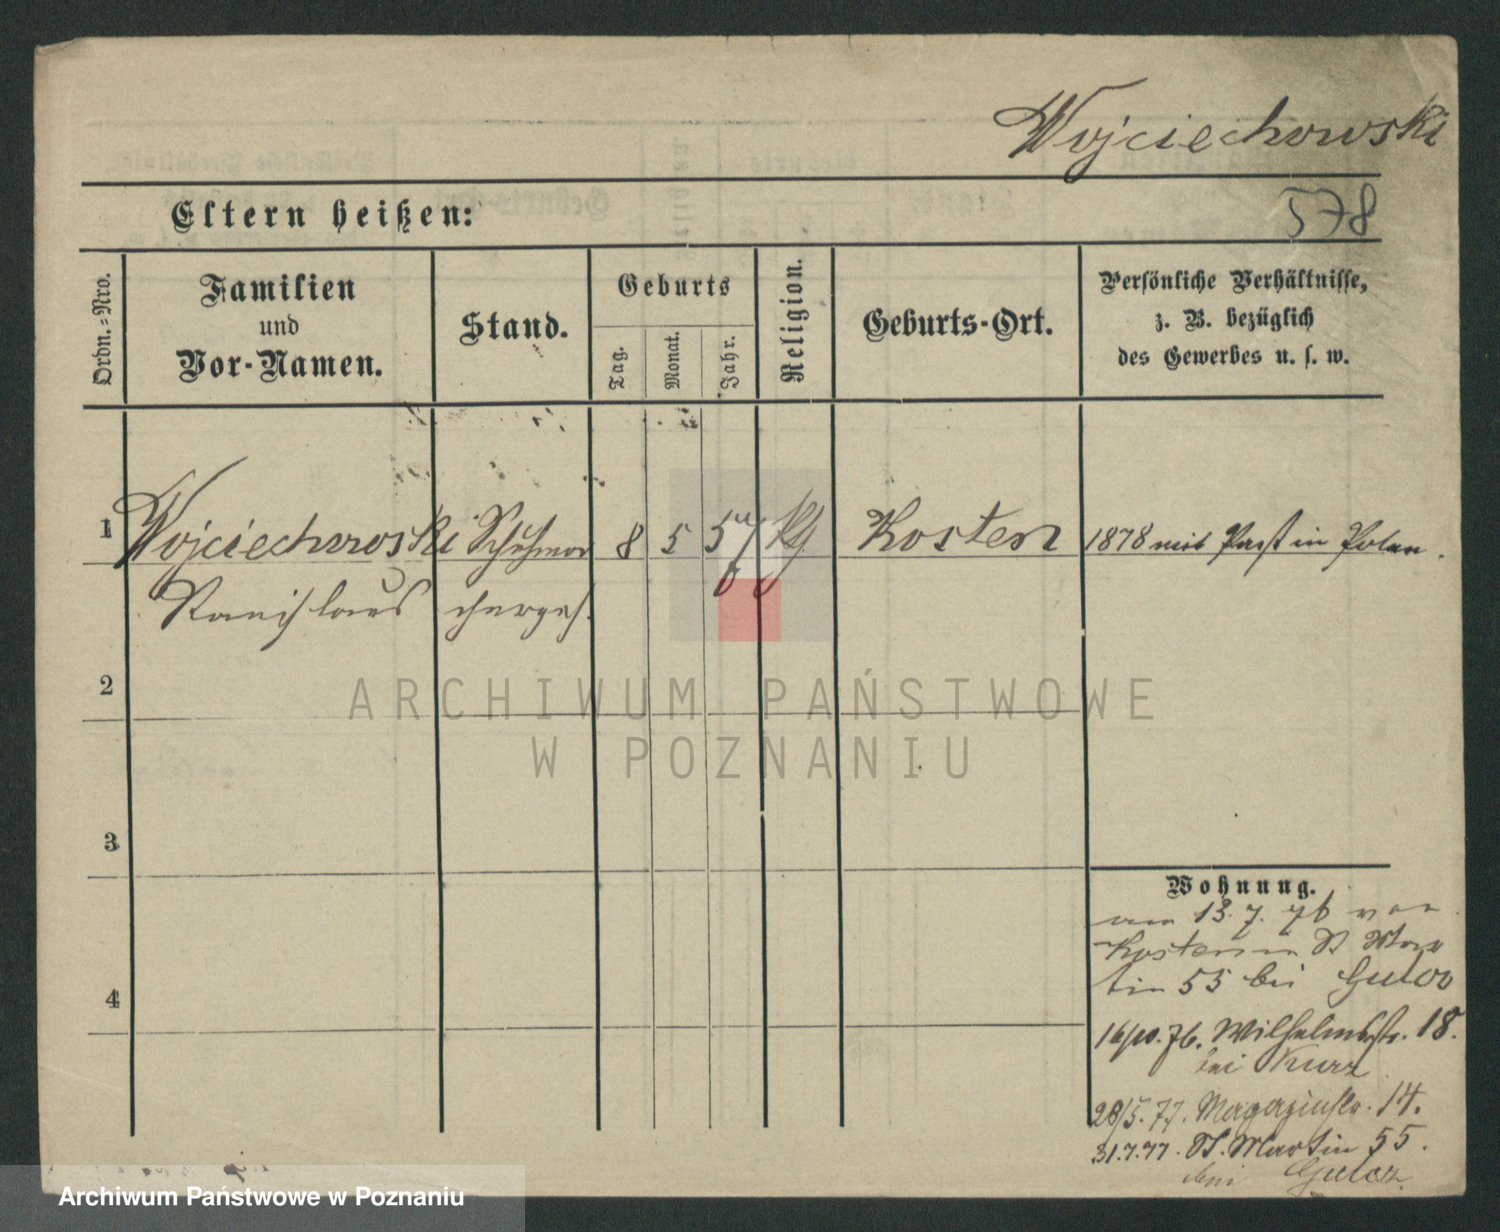 Wojciechowski
578
Eltern heißen:
Ordn.-Nro.
Familien
und
Vor-Namen.
Stand.
Geburts
Tag.
Monat.
Jahr.
Religion.
Geburts-Ort.
Persönliche Verhältnisse,
z. B. bezüglich
des Gewerbes u. s. w.
1
Wojciechowski Schuhma 8 5 57 Kosten 1878 mit Paß in Polen.
6
Stanislaus chergs.
2
ARCHIWUM PAŃSTWOWE
W POZNANIU
3
Wohnung.
am 13. 7. 76 von
Kosten St Mar
tin 55 bei Gulcz
4
16/10. 76. Wilhelmstr. 18.
bei Kurz
28/5. 77. Magazinstr. 14.
31.7.77. St. Martin 55.
bei Gulcz
Archiwum Państwowe w Poznaniu